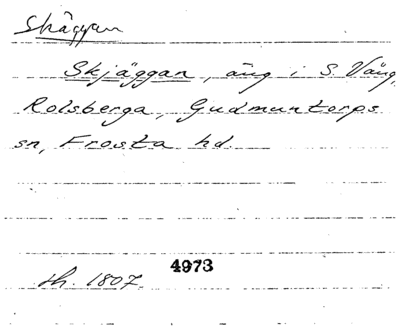 Skäggan
Skjäggan, äng i S. Vång,
Rolsberga, Gudmuntorps
sn, Frosta hd.
4973
th. 1807.